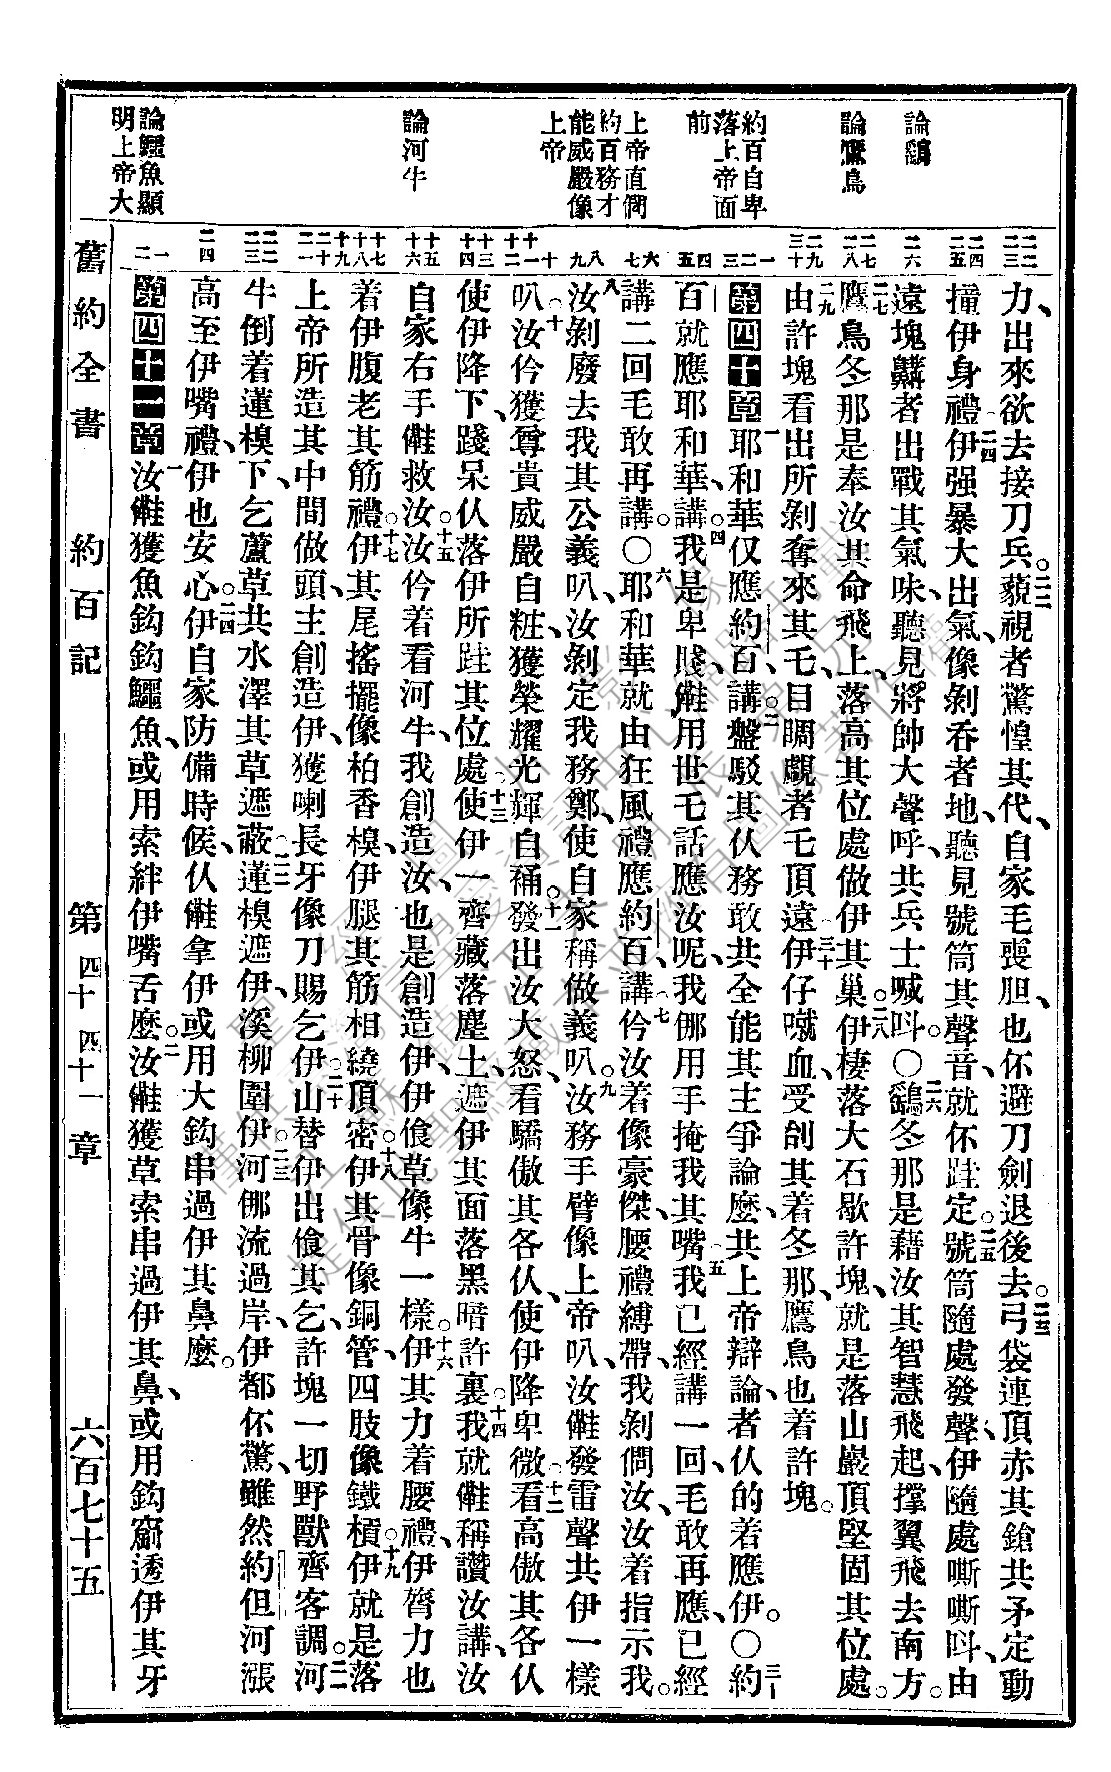 論鷂
論鷹鳥
約百自卑
落上帝面
前
上帝直僩
約百務才
能威嚴像
上帝
論河牛
論鱷魚顯
明上帝大
力、出來欲去接刀兵。二二藐視者驚惶其代、自家毛喪胆、也伓避刀劍退後去。二三弓袋連頂赤其鎗共矛定動
撞伊身禮、二四伊强暴大出氣、像剝吞者地、聽見號筒其聲音、就伓跓定。二五號筒隨處發聲、伊隨處嘶嘶呌、由
遠塊𪖙者出戰其氣味、聽見將帥大聲呼、共兵士喊呌。〇二六鷂冬那是藉汝其智慧飛起、撑翼飛去南方。
二七鷹鳥冬那是奉汝其命飛上、落高其位處做伊其巢。二八伊棲落大石歇許塊、就是落山巖頂堅固其位處。
二九由許塊看出所剝奪來其乇、目睭覷者乇頂遠、三十伊仔嗍血、受刣其着冬那、鷹鳥也着許塊。
第四十章 一耶和華仅應約百、講、二盤駁其伙務敢共全能其主爭論麼、共上帝辯論者伙的着應伊。〇三約
百就應耶和華、講、四我是卑賤、𣍐用世乇話應汝呢、我㑚用手掩我其嘴、五我已經講一回、毛敢再應、已經
講二回、毛敢再講。〇六耶和華就由狂風禮應約百、講、七仱汝着像豪傑、腰禮縛帶、我剝僩汝、汝着指示我。
八汝剝廢去我其公義叭、汝剝定我務鄭、使自家稱做義叭。九汝務手臂像上帝叭、汝𣍐發雷聲共伊一樣
叭、十汝仱獲尊貴威嚴自粧、獲榮耀光輝自䙓。十一發出汝大怒、看驕傲其各伙、使伊降卑微、十二看高傲其各伙
使伊降下、踐呆伙落伊所跓其位處、十三使伊一齊藏落塵土、遮伊其面落黑暗許裏。十四我就𣍐稱讚汝、講、汝
自家右手𣍐救汝。十五汝仱着看河牛、我創造汝、也是創造伊、伊飡草像牛一樣。十六伊其力着腰禮、伊膂力也
着伊腹老其筋禮。十七伊其尾搖擺像柏香模、伊腿其筋相繞頂密。十八伊其骨像銅管、四肢像鐵槓。十九伊就是落
上帝所造其中間做頭、主創造伊、獲喇長牙像刀賜乞伊。二十山替伊出飡其、乞許塊一切野獸齊客調。二一河
牛倒着蓮模下、乞蘆草共水澤其草遮蔽、二二蓮模遮伊、溪柳圍伊。二三河㑚流過岸、伊都伓驚、雖然約但河漲
高至伊嘴禮、伊也安心。二四伊自家防備時候、伙𣍐拿伊、或用大鈎串過伊其鼻麼。
第四十一章 一汝𣍐獲魚鈎鈎鱷魚、或用索絆伊嘴舌麼。二汝𣍐獲草索串過伊其鼻、或用鈎竆透伊其牙
舊約全書　約百記　第四十 四十一章　六百七十五